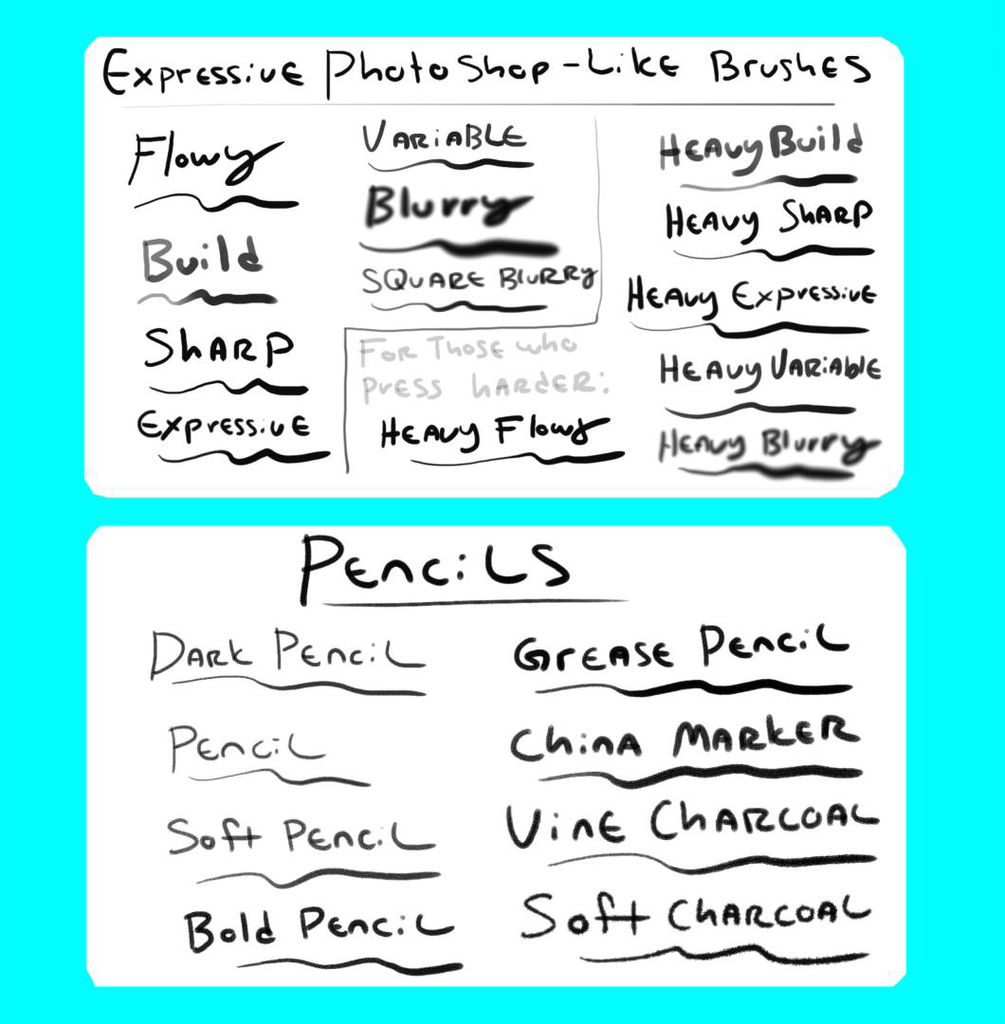 Expressive PhotoShop-Like Brushes
Flowy
Build
Sharp
Expressive
Variable
Blurry
Square Blurry
For Those who
press harder:
Heavy Flowy
Heavy Build
Heavy Sharp
Heavy Expressive
Heavy Variable
Heavy Blurry
Pencils
Dark Pencil
Pencil
Soft Pencil
Bold Pencil
Grease Pencil
China Marker
Vine Charcoal
Soft Charcoal